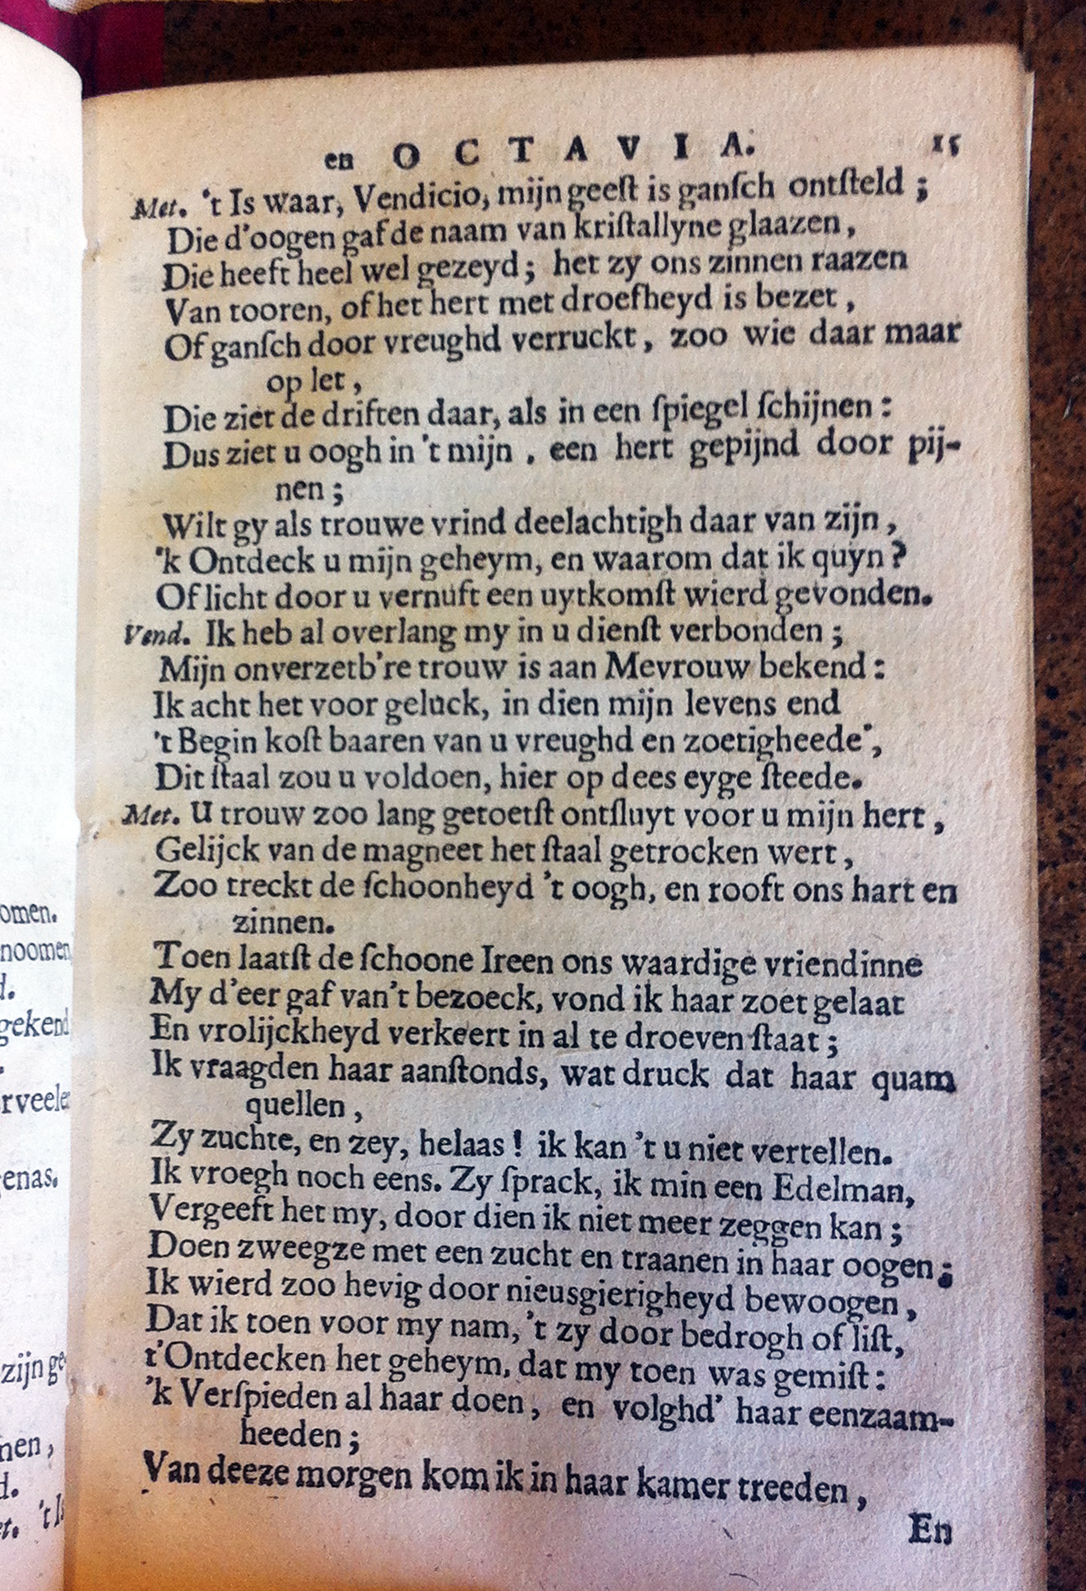 en OCTAVIA. 15
Met. 't Is waar, Vendicio, mijn geeſt is ganſch ontſteld ;
Die d'oogen gaf de naam van kriſtallyne glaazen ,
Die heeft heel wel gezeyd ; het zy ons zinnen raazen
Van tooren, of het hert met droefheyd is bezet ,
Of ganſch door vreughd verruckt , zoo wie daar maar
op let ,
Die ziet de driften daar, als in een ſpiegel ſchijnen :
Dus ziet u oogh in 't mijn , een hert gepijnd door pij-
nen ;
Wilt gy als trouwe vrind deelachtigh daar van zijn ,
'k Ontdeck u mijn geheym, en waarom dat ik quyn ?
Of licht door u vernuft een uytkomſt wierd gevonden.
Vend. Ik heb al overlang my in u dienſt verbonden ;
Mijn onverzetb're trouw is aan Mevrouw bekend :
Ik acht het voor geluck, in dien mijn levens end
't Begin koſt baaren van u vreughd en zoetigheede',
Dit ſtaal zou u voldoen, hier op dees eyge ſteede.
Met. U trouw zoo lang getoetſt ontſluyt voor u mijn hert ,
Gelijck van de magneet het ſtaal getrocken wert ,
Zoo treckt de ſchoonheyd 't oogh, en rooft ons hart en
zinnen.
Toen laatſt de ſchoone Ireen ons waardige vriendinne
My d'eer gaf van't bezoeck, vond ik haar zoet gelaat
En vrolijckheyd verkeert in al te droeven ſtaat ;
Ik vraagden haar aanſtonds, wat druck dat haar quam
quellen ,
Zy zuchte, en zey, helaas ! ik kan 't u niet vertellen.
Ik vroegh noch eens. Zy ſprack, ik min een Edelman,
Vergeeft het my, door dien ik niet meer zeggen kan ;
Doen zweegze met een zucht en traanen in haar oogen ;
Ik wierd zoo hevig door nieusgierigheyd bewoogen ,
Dat ik toen voor my nam, 't zy door bedrogh of liſt,
t'Ontdecken het geheym, dat my toen was gemiſt :
'k Verſpieden al haar doen , en volghd' haar eenzaam-
heeden ;
Van deeze morgen kom ik in haar kamer treeden ,
En
omen.
noomen
d.
gekend
.
rveele
enas.
zijn ge-
men ,
d.
et. 't Is